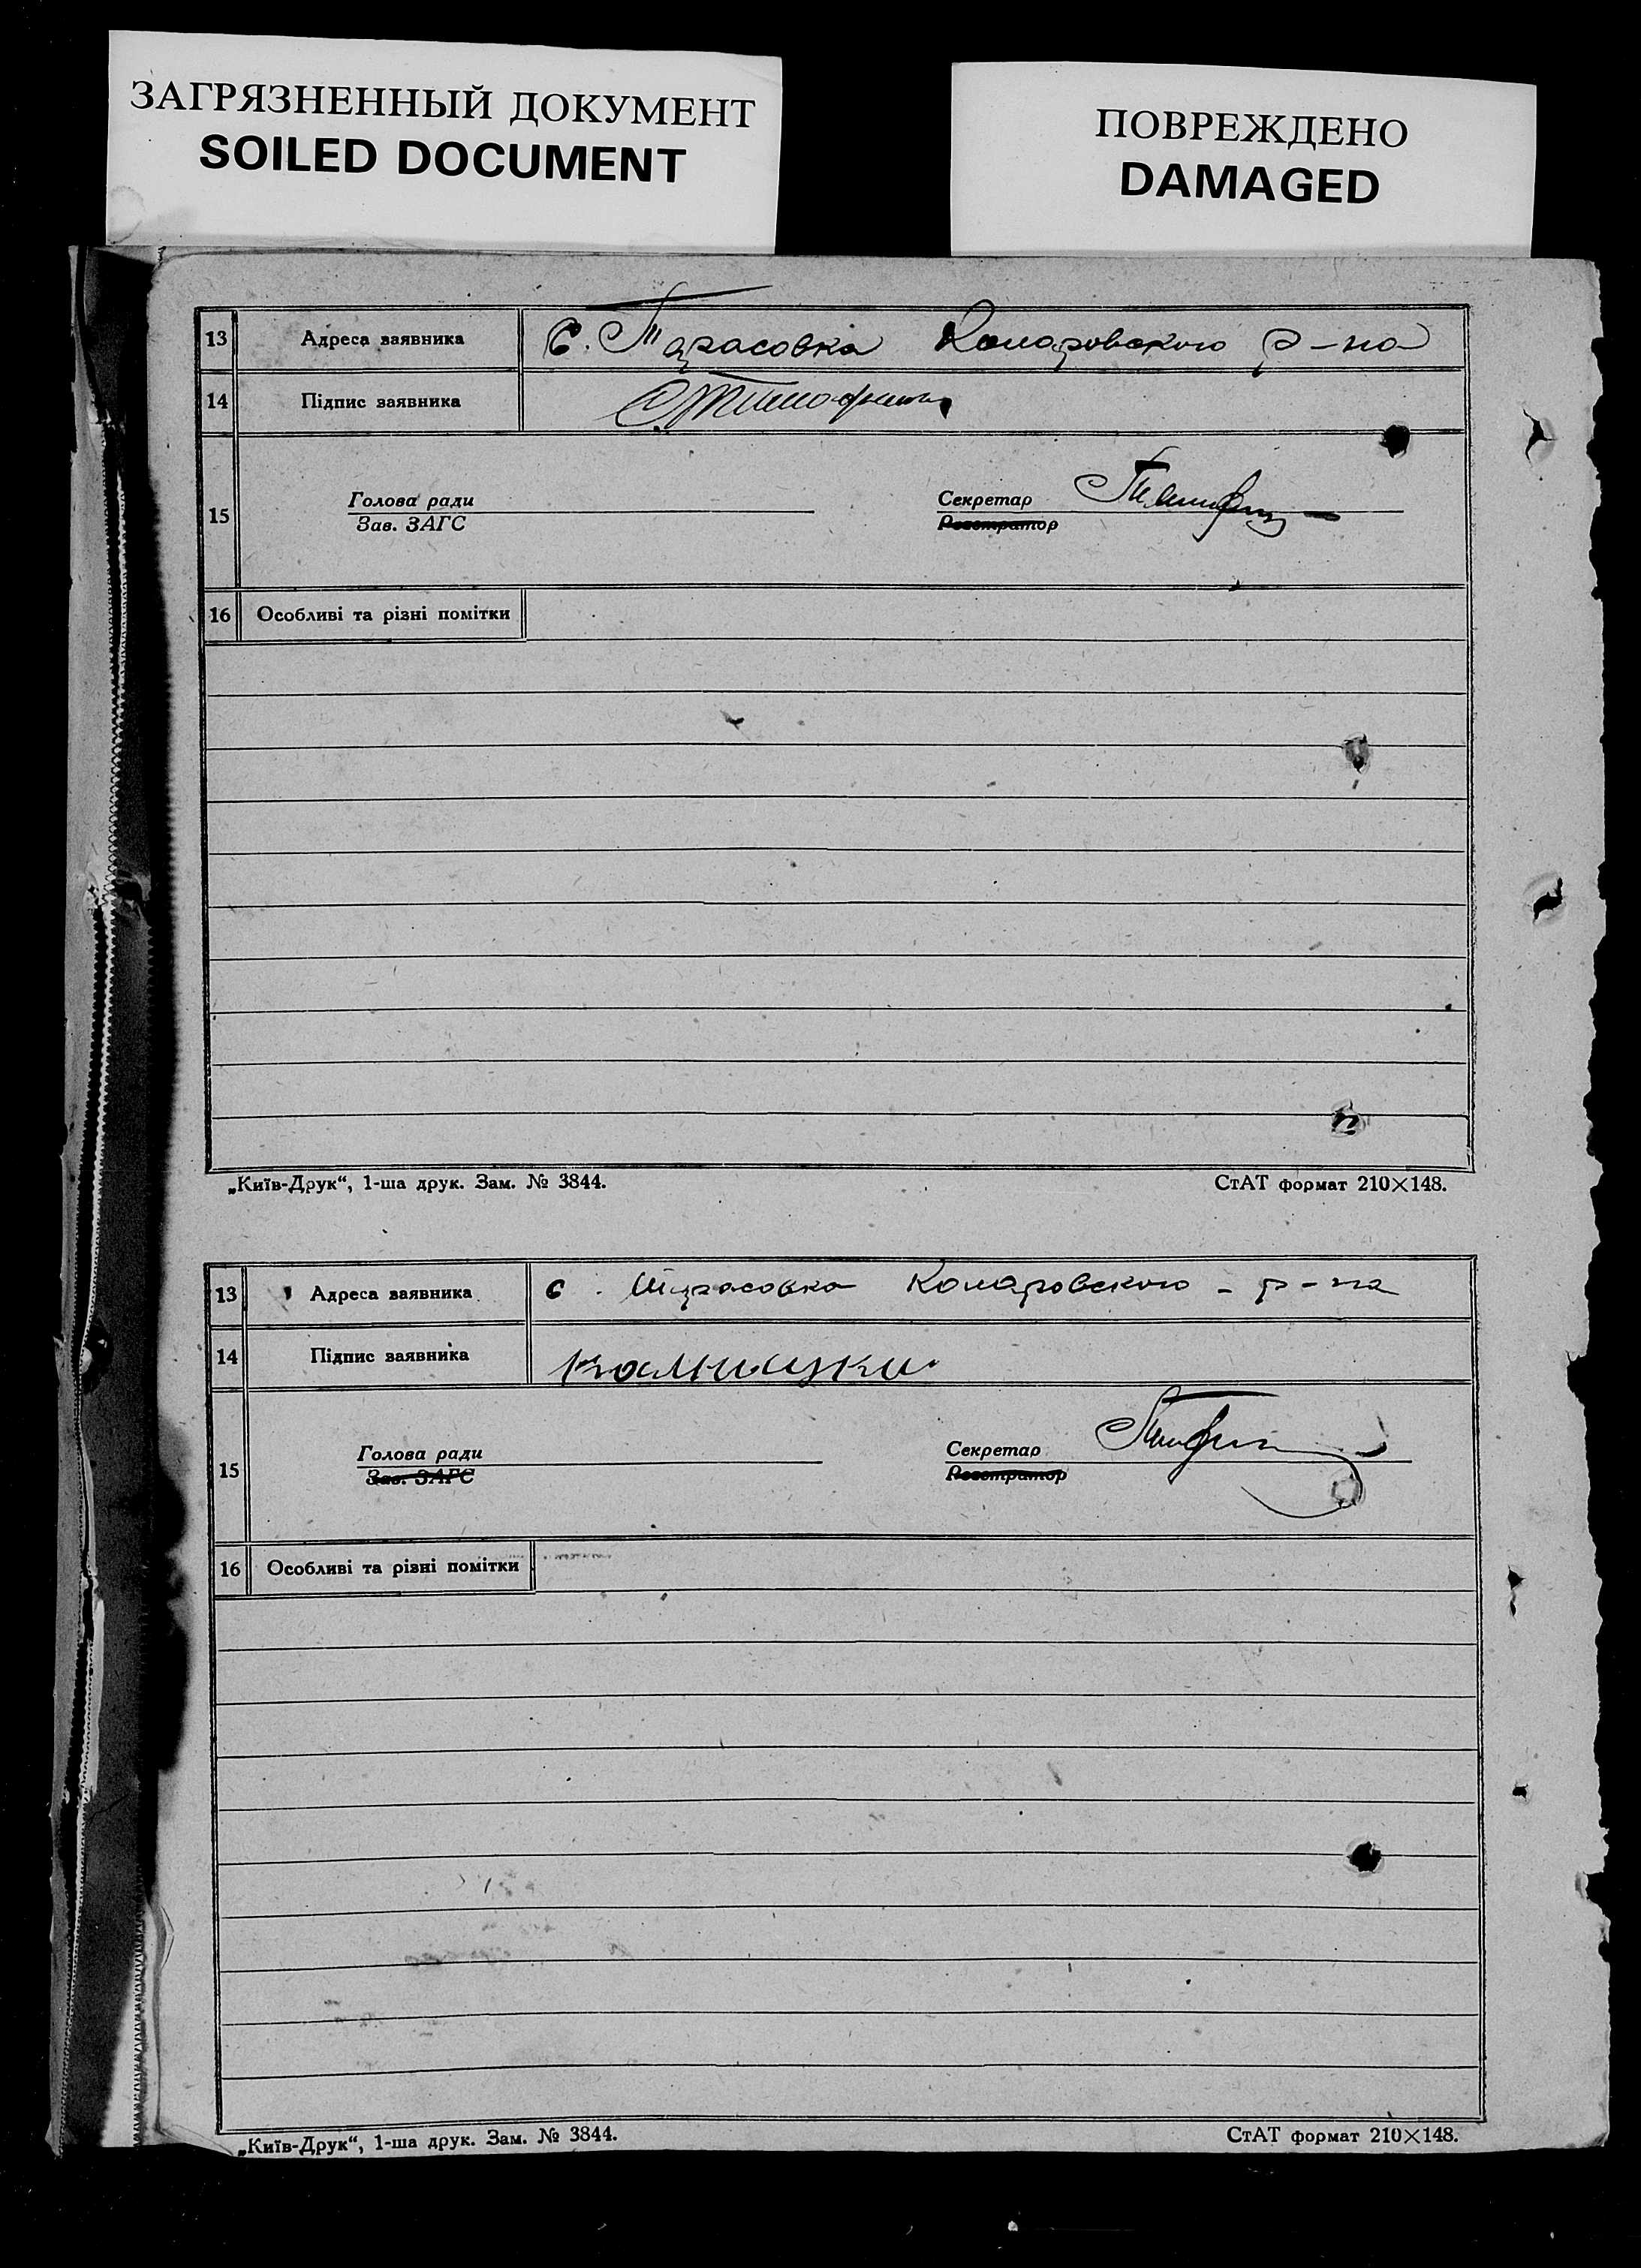 ЗАГРЯЗНЕННЫЙ ДОКУМЕНТ
SOILED DOCUMENT
ПОВРЕЖДЕНО
DAMAGED
13 Адреса заявника С. Тарасовка Комаровского р-на
14 Підпис заявника
15 Голова ради Секретар
Зав. ЗАГС Реєстратор
16 Особливі та різні помітки
„Київ-Друк“, 1-ша друк. Зам. № 3844. СтАТ формат 210×148.
13 Адреса заявника с. Тарасовка Комаровского - р-на
14 Підпис заявника
15 Голова ради Секретар
Зав. ЗАГС Реєстратор
16 Особливі та різні помітки
„Київ-Друк“, 1-ша друк. Зам. № 3844. СтАТ формат 210×148.